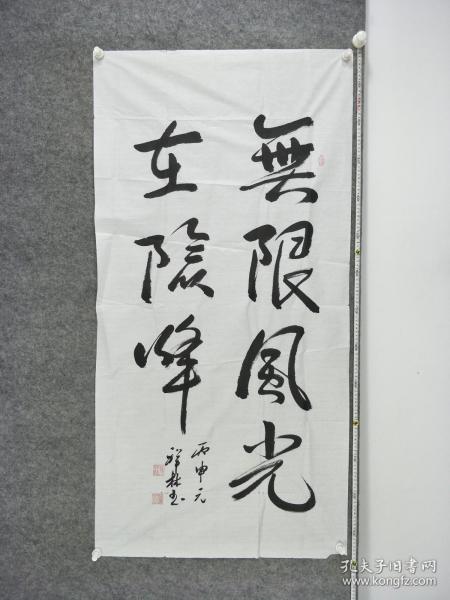 無限風光
在險峰
丙申元
祥林书
孔夫子旧书网
www.kongfz.com